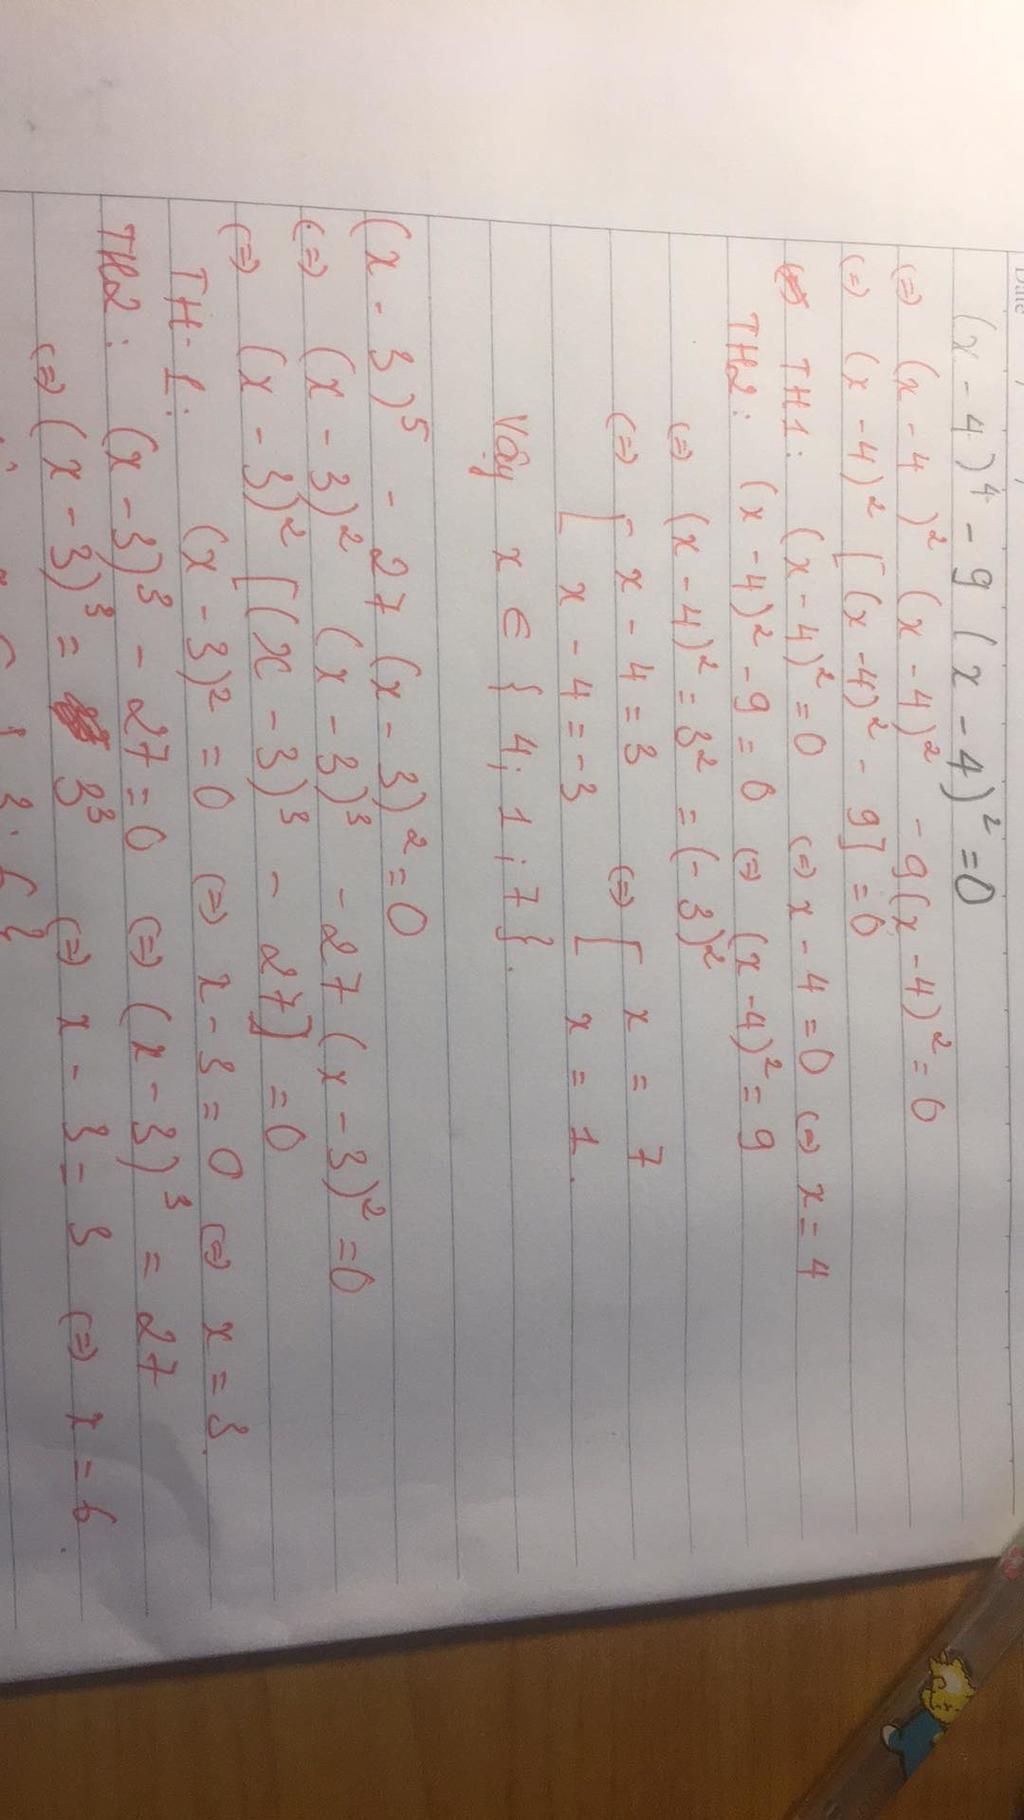 Date
(x - 4)⁴ - 9 (x - 4)² = 0
(=) (x - 4)² (x - 4)² - 9(x - 4)² = 0
(=) (x - 4)² [(x - 4)² - 9] = 0
TH1: (x - 4)² = 0 (=) x - 4 = 0 (=) x = 4
TH2: (x - 4)² - 9 = 0 (=) (x - 4)² = 9
(=) (x - 4)² = 3² = (- 3)²
(=) [ x - 4 = 3 (=) [ x = 7
x - 4 = -3 x = 1.
Vậy x ∈ { 4; 1; 7 }.
(x - 3)⁵ - 27 (x - 3)² = 0
(=) (x - 3)² (x - 3)³ - 27 (x - 3)² = 0
(=) (x - 3)² [(x - 3)³ - 27] = 0
TH 1: (x - 3)² = 0 (=) x - 3 = 0 (=) x = 3.
TH2: (x - 3)³ - 27 = 0 (=) (x - 3)³ = 27
(=) (x - 3)³ = 3³ (=) x - 3 = 3 (=) x = 6.